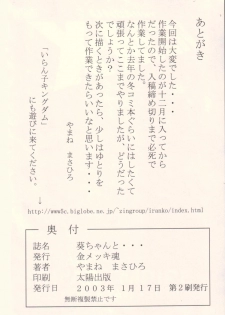 あとがき
今回は大変でした・・・
作業開始したのが十二月に入ってから
だったので、入稿締め切りまで必死で
作業してました。
なんとか去年の冬コミ本ぐらいにはしたくて
頑張ってここまでやりましたが、どうだった
でしょうか?
次に描くときがあったら、少しはゆとりを
もって作業できたらいいなと思います・・・・
やまね まさひろ
「いらん子キングダム」
にも遊びに来てください。
http://www5c.biglobe.ne.jp/~zingroup/iranko/index.html
奥 付
誌名 葵ちゃんと・・・
発行 金メッキ魂
著者 やまね まさひろ
印刷 太陽出版
発行日 2003年 1月17日 第2刷発行
無断複製禁止です